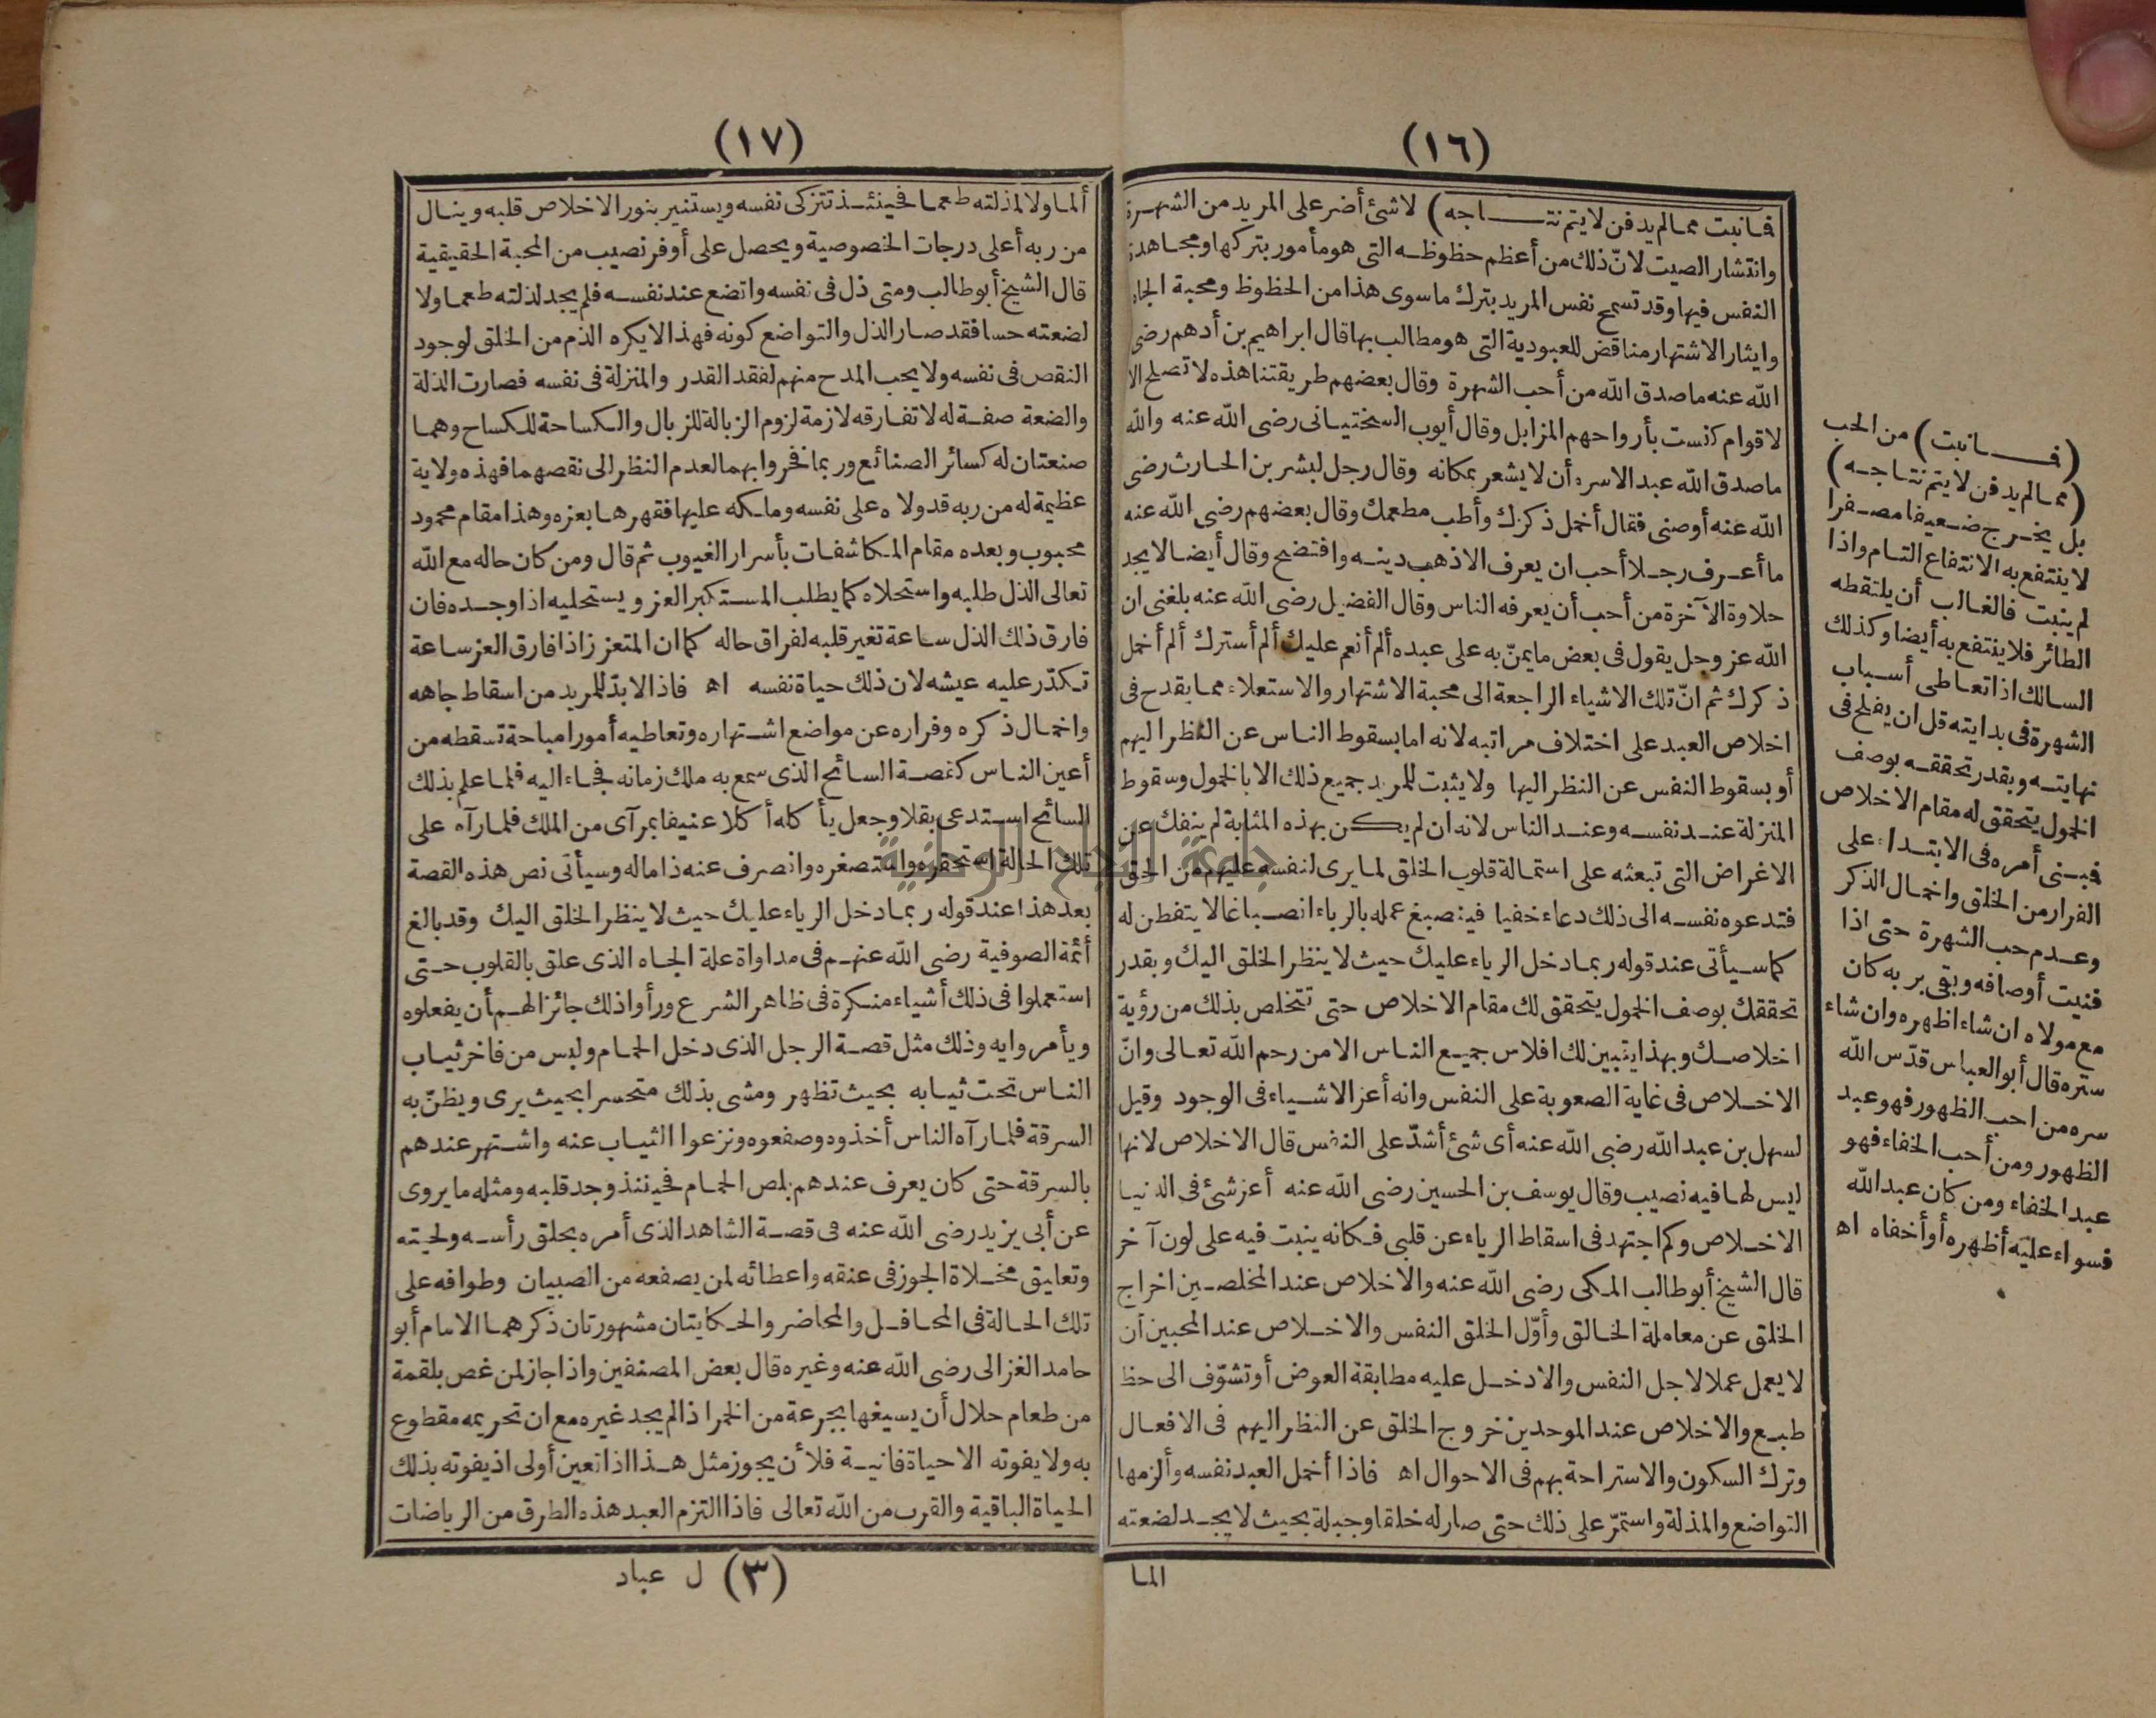 (١٦)
فانبت ممالم يدفن لا يتم نتاجه) لا شئ أضر على المريد من الشهرة
وانتشار الصيت لانّ ذلك من أعظم حظوظه التى هو مأمور بتركها ومجاهدة
النفس فيها وقد تسمح نفس المريد بترك ما سوى هذا من الحظوظ ومحبة الجاه
وايثار الاشتهار مناقض للعبودية التى هو مطالب بها قال ابراهيم بن أدهم رضى
الله عنه ما صدق الله من أحب الشهرة وقال بعضهم طريقتنا هذه لا تصلح الا
لاقوام كنست بأرواحهم المزابل وقال أيوب السختيانى رضى الله عنه والله
ما صدق الله عبد الا سره أن لا يشعر بمكانه وقال رجل لبشر بن الحارث رضى
الله عنه أوصنى فقال أخمل ذكرك وأطب مطعمك وقال بعضهم رضى الله عنه
ما أعرف رجلا أحب ان يعرف الا ذهب دينه وافتضح وقال أيضا لا يجد
حلاوة الآخرة من أحب أن يعرفه الناس وقال الفضيل رضى الله عنه بلغنى ان
الله عز وجل يقول فى بعض ما يمنّ به على عبده ألم أنعم عليك ألم أسترك ألم أخمل
ذكرك ثم انّ تلك الاشياء الراجعة الى محبة الاشتهار والاستعلاء مما يقدح فى
اخلاص العبد على اختلاف مراتبه لانه اما بسقوط الناس عن النظر اليهم
أو بسقوط النفس عن النظر اليها ولا يثبت للمريد جميع ذلك الا بالخمول وسقوط
المنزلة عند نفسه وعند الناس لانه ان لم يكن بهذه المثابة لم ينفك عن
الاغراض التى تبعثه على استمالة قلوب الخلق لما يرى لنفسه عليهم من الحق
فتدعوه نفسه الى ذلك دعاء خفيا فينصبغ عمله بالرياء انصباغا لا يتفطن له
كما سيأتى عند قوله ربما دخل الرياء عليك حيث لا ينظر الخلق اليك وبقدر
تحققك بوصف الخمول يتحقق لك مقام الاخلاص حتى تتخلص بذلك من رؤية
اخلاصك وبهذا يتبين لك افلاس جميع الناس الا من رحم الله تعالى وانّ
الاخلاص فى غاية الصعوبة على النفس وانه أعز الاشياء فى الوجود وقيل
لسهل بن عبد الله رضى الله عنه أى شئ أشدّ على النفس قال الاخلاص لانها
ليس لها فيه نصيب وقال يوسف بن الحسين رضى الله عنه أعز شئ فى الدنيا
الاخلاص وكم اجتهد فى اسقاط الرياء عن قلبى فكانه ينبت فيه على لون آخر
قال الشيخ أبو طالب المكى رضى الله عنه والاخلاص عند المخلصين اخراج
الخلق عن معاملة الخالق وأوّل الخلق النفس والاخلاص عند المحبين أن
لا يعمل عملا لاجل النفس والا دخل عليه مطابقة العوض أو تشوّف الى حظ
طبع والاخلاص عند الموحدين خروج الخلق عن النظر اليهم فى الافعال
وترك السكون والاستراحة بهم فى الاحوال اه فاذا أخمل العبد نفسه وألزمها
التواضع والمذلة واستمرّ على ذلك حتى صار له خلقا وجبلة بحيث لا يجد لضعته
الما
(فانبت) من الحب
(ممالم يدفن لا يتم نتاجه)
بل يخرج ضعيفا مصفرا
لا ينتفع به الانتفاع التام واذا
لم ينبت فالغالب أن يلتقطه
الطائر فلا ينتفع به أيضا وكذلك
السالك اذا تعاطى أسباب
الشهرة فى بدايته قل ان يفلح فى
نهايته وبقدر تحققه بوصف
الخمول يتحقق له مقام الاخلاص
فينى أمره فى الابتداء على
الفرار من الخلق واخمال الذكر
وعدم حب الشهرة حتى اذا
فنيت أوصافه وبقى بربه كان
مع مولاه ان شاء اظهره وان شاء
ستره قال أبو العباس قدّس الله
سره من احب الظهور فهو عبد
الظهور ومن أحب الخفاء فهو
عبد الخفاء ومن كان عبد الله
فسواء عليه أظهره أو أخفاه اه
(١٧)
ألما ولا لمذلته طعما فحينئذ تتزكى نفسه ويستنير بنور الاخلاص قلبه وينال
من ربه أعلى درجات الخصوصية ويحصل على أوفر نصيب من المحبة الحقيقية
قال الشيخ أبو طالب ومتى ذل فى نفسه واتضع عند نفسه فلم يجد لذلته طعما ولا
لضعته حسا فقد صار الذل والتواضع كونه فهذا لا يكره الذم من الخلق لوجود
النقص فى نفسه ولا يحب المدح منهم لفقد القدر والمنزلة فى نفسه فصارت الذلة
والضعة صفة له لا تفارقه لازمة لزوم الزبالة للزبال والكساحة للكساح وهما
صنعتان له كسائر الصنائع وربما فخروا بهما لعدم النظر الى نقصهما فهذه ولاية
عظيمة له من ربه قد ولاه على نفسه وملكه عليها فقهرها بعزه وهذا مقام محمود
محبوب وبعده مقام المكاشفات بأسرار الغيوب ثم قال ومن كان حاله مع الله
تعالى الذل طلبه واستحلاه كما يطلب المستكبر العز ويستحليه اذا وجده فان
فارق ذلك الذل ساعة تغير قلبه لفراق حاله كما ان المتعزز اذا فارق العز ساعة
تكدّر عليه عيشه لان ذلك حياة نفسه اه فاذا لا بدّ للمريد من اسقاط جاهه
واخمال ذكره وفراره عن مواضع اشتهاره وتعاطيه أمورا مباحة تسقطه من
أعين الناس كقصة السائح الذى سمع به ملك زمانه فجاء اليه فلما علم بذلك
السائح استدعى بقلا وجعل يأكله أكلا عنيفا بمرآى من الملك فلما رآه على
تلك الحالة استحقره واستصغره وانصرف عنه ذاما له وسيأتى نص هذه القصة
بعد هذا عند قوله ربما دخل الرياء عليك حيث لا ينظر الخلق اليك وقد بالغ
أئمة الصوفية رضى الله عنهم فى مداواة علة الجاه الذى علق بالقلوب حتى
استعملوا فى ذلك أشياء منكرة فى ظاهر الشرع ورأوا ذلك جائزا لهم أن يفعلوه
ويأمروا به وذلك مثل قصة الرجل الذى دخل الحمام ولبس من فاخر ثياب
الناس تحت ثيابه بحيث تظهر ومشى بذلك متحسرا بحيث يرى ويظنّ به
السرقة فلما رآه الناس أخذوه وصفعوه ونزعوا الثياب عنه واشتهر عندهم
بالسرقة حتى كان يعرف عندهم بلص الحمام فحينئذ وجد قلبه ومثله ما يروى
عن أبى يزيد رضى الله عنه فى قصة الشاهد الذى أمره بحلق رأسه ولحيته
وتعليق مخلاة الجوز فى عنقه واعطائه لمن يصفعه من الصبيان وطوافه على
تلك الحالة فى المحافل والمحاضر والحكايتان مشهورتان ذكرهما الامام أبو
حامد الغزالى رضى الله عنه وغيره قال بعض المصنفين واذا جاز لمن غص بلقمة
من طعام حلال أن يسيغها بجرعة من الخمر اذا لم يجد غيره مع ان تحريمه مقطوع
به ولا يفوته الا حياة فانية فلأن يجوز مثل هذا اذا تعين أولى اذ يفوته بذلك
الحياة الباقية والقرب من الله تعالى فاذا التزم العبد هذه الطرق من الرياضات
(٣) ل عباد
جامعة النجاح الوطنية